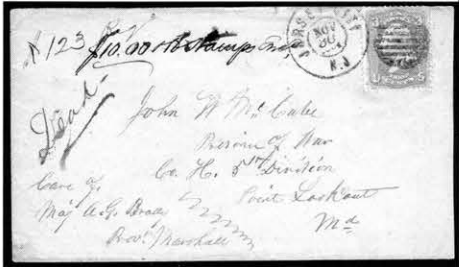 № 123 $10.00 & stamps Enc.
JERSEY CITY
NOV
30
N.J
U S
Dead
John W McCabe
Prisoner of War
Co. H. 5th Division
Point Lookout
Md
Care of
Maj A.G. Brady
Provt Marshall